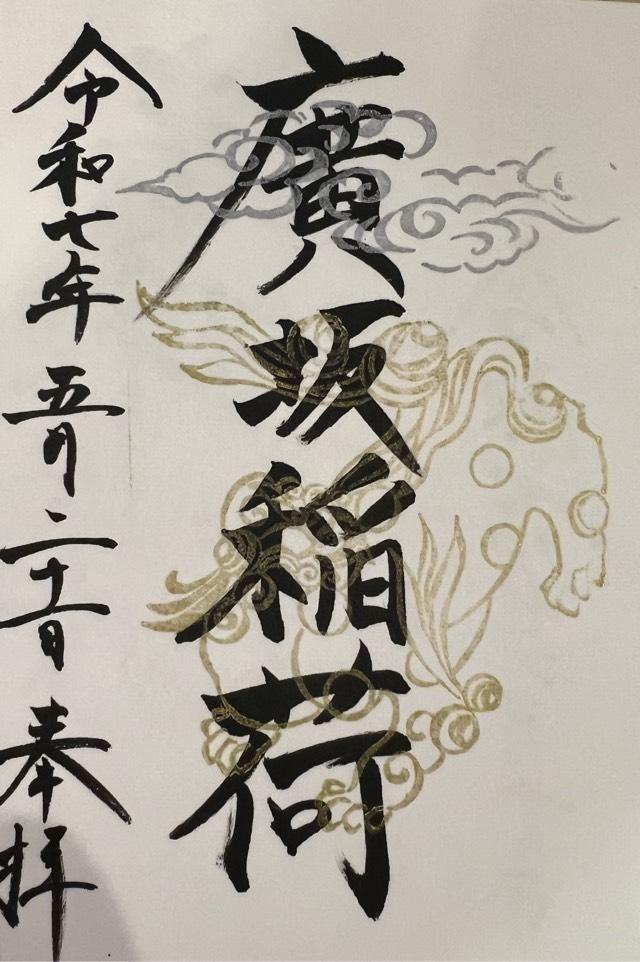 廣坂稲荷
令和七年五月二十一日奉拝